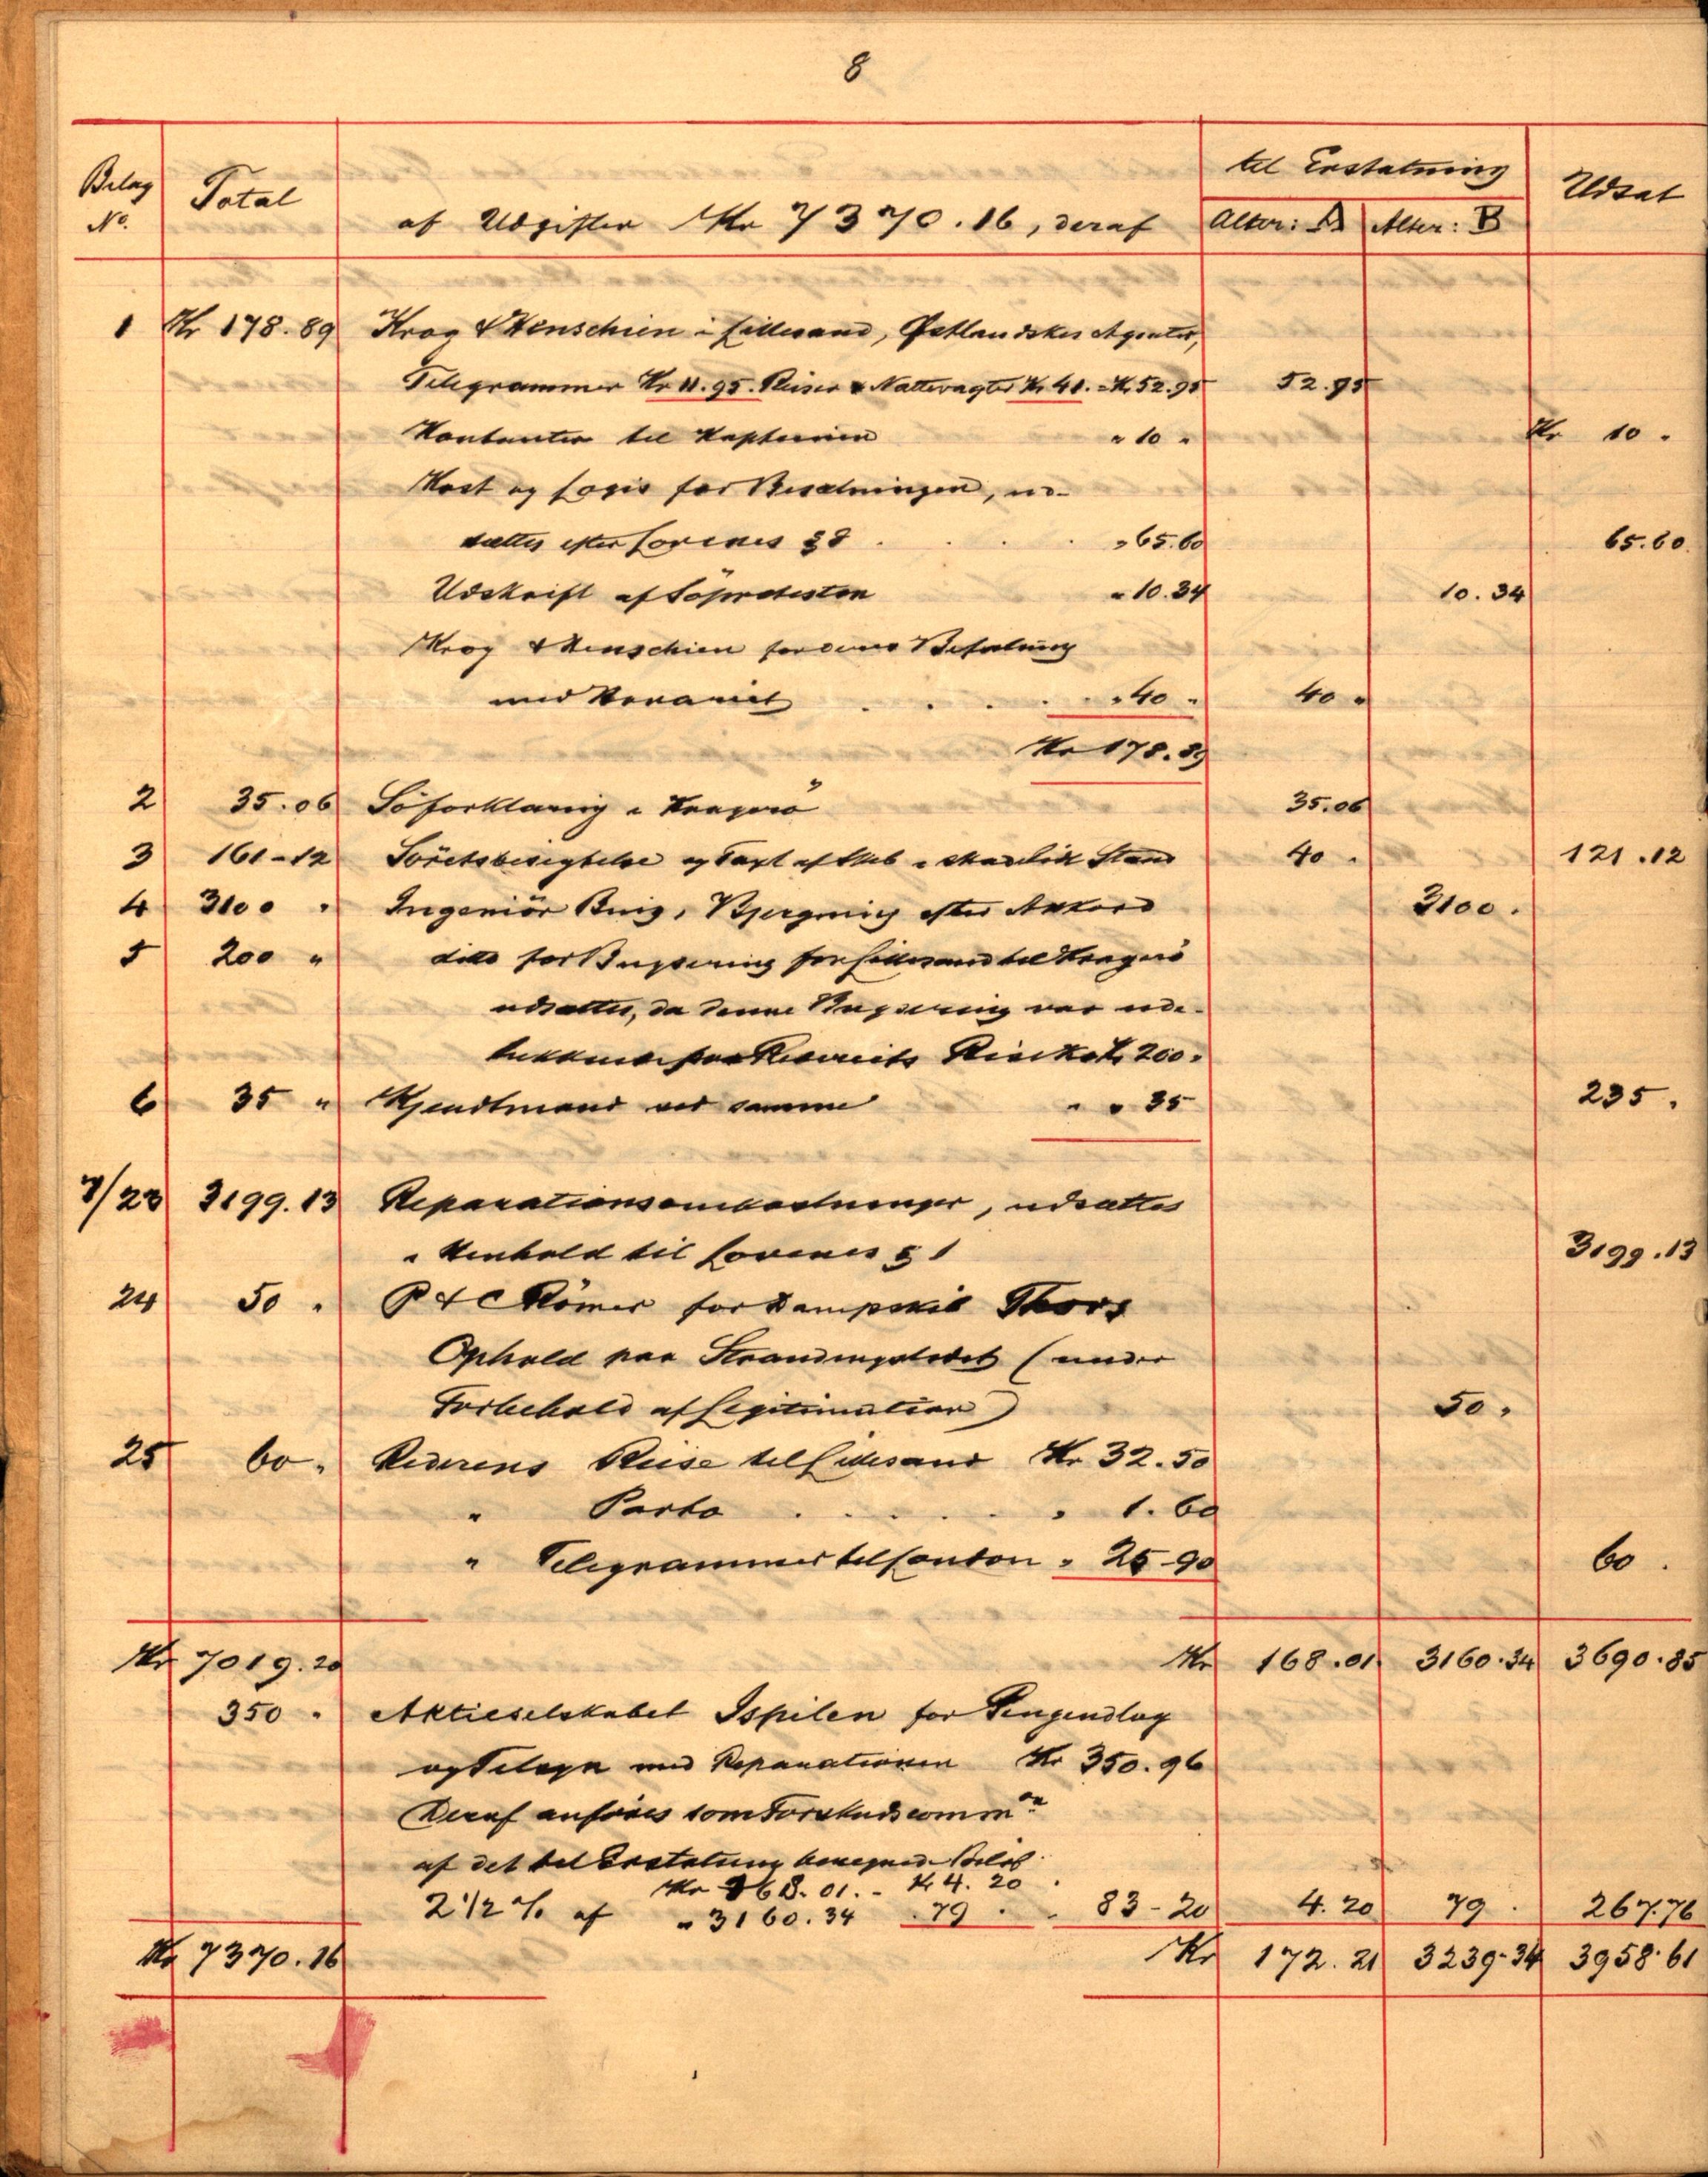 8
Belag No. Total af Udgifter Kr 7370.16, deraf til Erstatning Alter: A Alter: B Udsat
1 Kr 178.89 Krog & Henschien i Lillesand, Østlandskes Agenter,
Telegrammer Kr 11.95. Reiser & Nattevagter Kr 41. = Kr 52.95 52.95
Kontanter til Kapteinen " 10 " Kr 10 "
Kost og Logis for Besætningen, ud-
sættes efter Lovenes § 8 . . . " 65.60 65.60
Udskrift af Söprotesten " 10.34 10.34
Krog & Henschien for deres Befatning
med Havariet . . . . " 40 " 40 "
Kr 178.89
2 35.06 Söforklaring i Kragerö 35.06
3 161-12 Söretsbesigtelse og Taxt af Skib i skadet Stand 40 " 121.12
4 3100 " Ingeniör Bergning efter Akkord 3100 "
5 200 " ditto for Bugsering fra Lillesand til Kragerö
udsættes, da denne Bugsering var
Kr 200 "
6 35 " Kjendtmand ved samme " " 35 235 "
7/23 3199.13 Reparationsomkostninger, udsættes
i Henhold til Lovenes § 1 3199.13
24 50 " P & C Römer for Dampskib Thors
Ophold paa Strandingsstedet (under
Forbehold af Legitimation) 50 "
25 60 " Rederens Reise til Lillesand Kr 32.50
" Porto . . . . . " 1.60
" Telegrammer til London " 25-90 60 "
Kr 7019.20 Kr 168.01 3160.34 3690.85
350 " Aktieselskabet Ispilen for Pengeudlæg
og Tilsyn med Reparationen Kr 350.96
Deraf anföres som Forskudscommon
af det til Erstatning beregnede Belöb
Kr 168.01. - Kr 4.20
2 1/2 % af " 3160.34 " 79 " " 83-20 4.20 79 " 267.76
Kr 7370.16 Kr 172.21 3239-34 3958.61